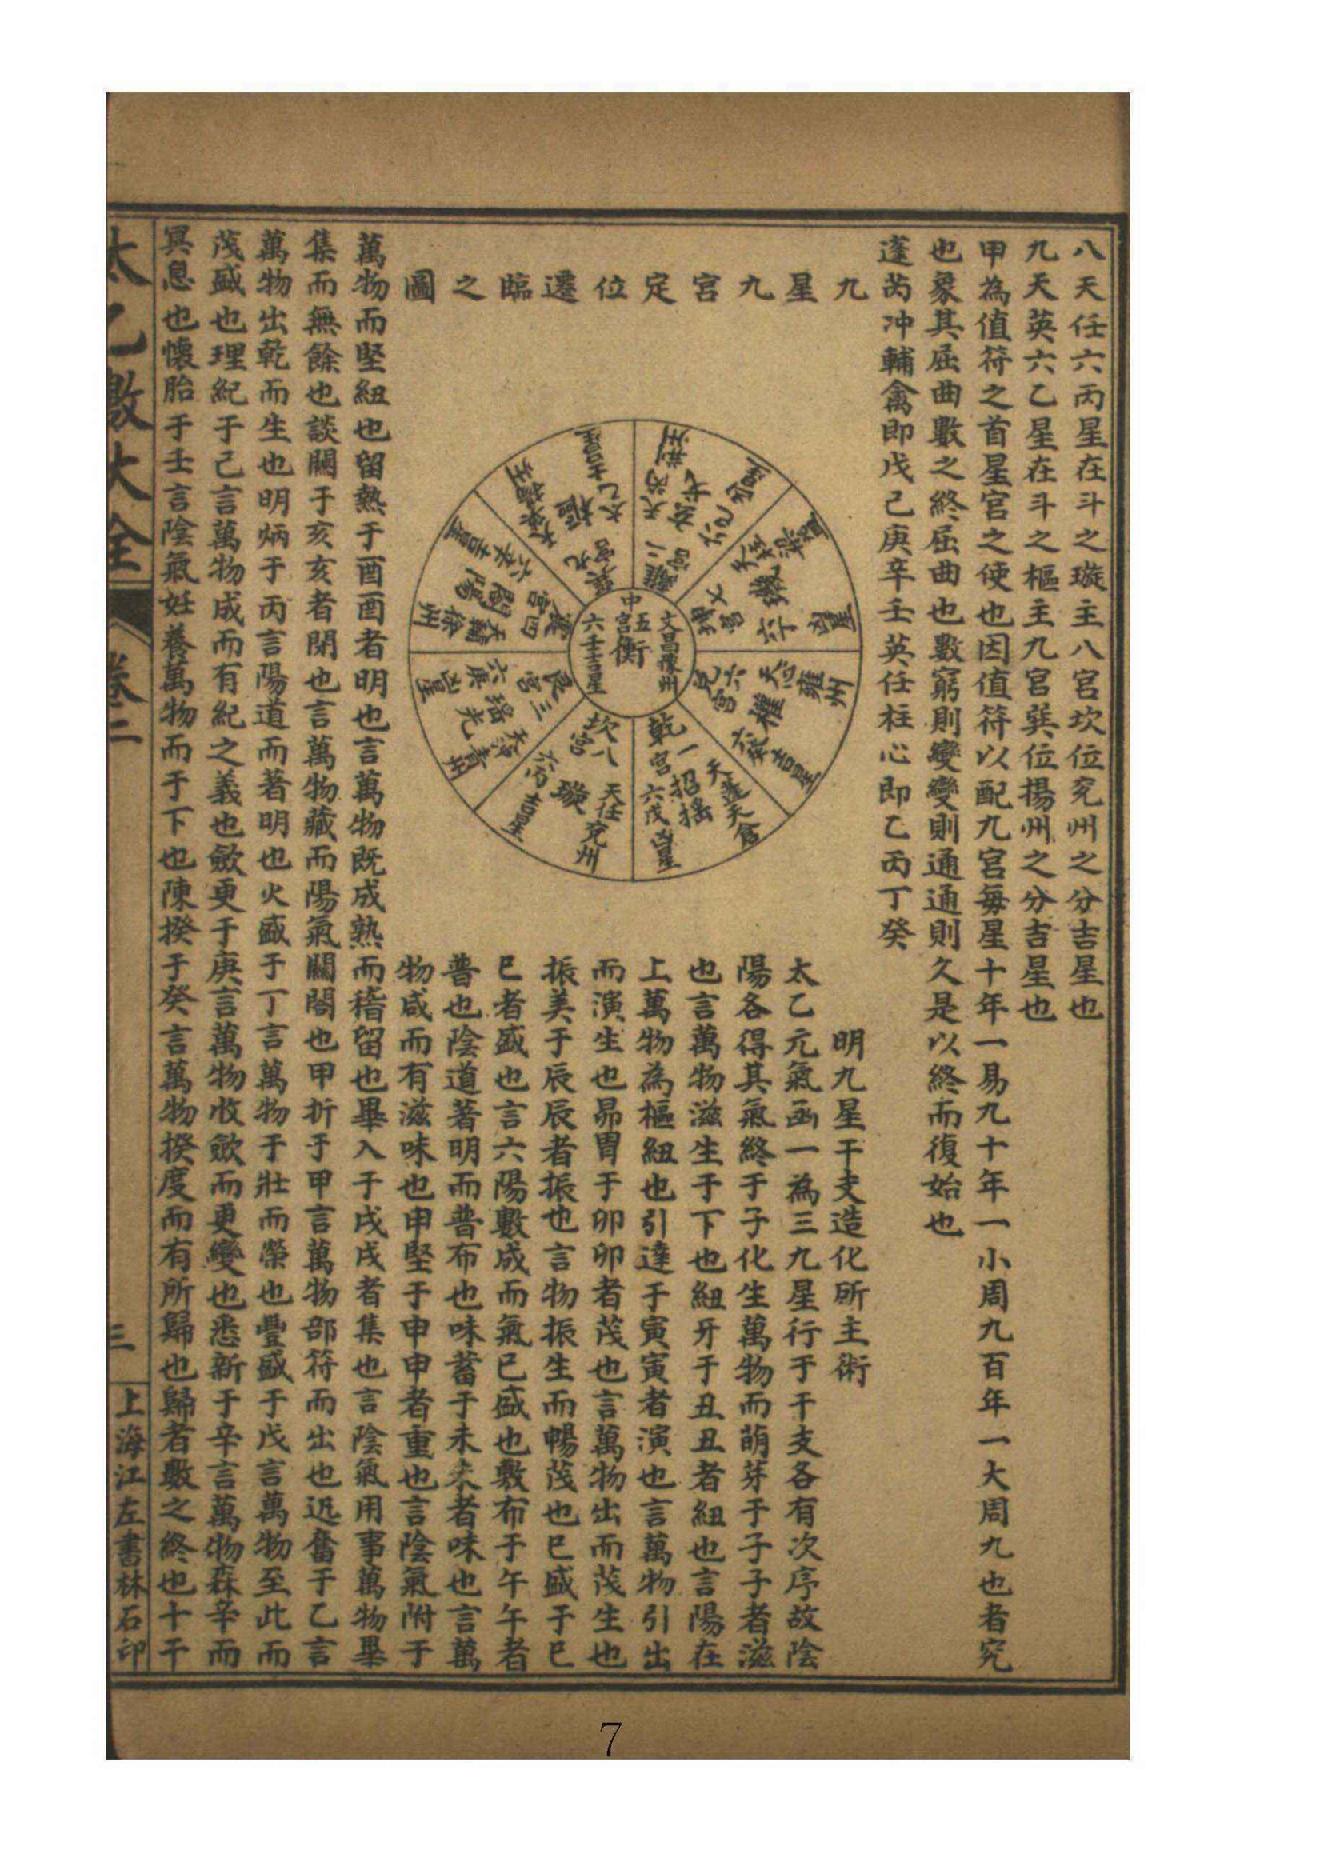 八天任六丙星在斗之璇主八宮坎位兗州之分吉星也
九天英六乙星在斗之樞主九宮巽位揚州之分吉星也
甲為值符之首星宮之使也因值符以配九宮每星十年一易九十年一小周九百年一大周九也者究
也象其屈曲數之終屈曲也數窮則變變則通通則久是以終而復始也
蓬芮沖輔禽即戊己庚辛壬英任柱心即乙丙丁癸
九星九宮定位遷臨之圖
中五宮
衡
文昌豫州
六壬吉星
乾一宮
招搖
天蓬天倉
六戊凶星
坎八宮
璇
天任兗州
六丙吉星
艮三宮
瑤光
六庚
凶星
青州
震四宮
闓陽
天輔
徐州
六辛吉星
巽九宮
樞
六乙吉星
離二宮
天芮荊州
六己
坤七宮
璣
天柱
六丁
兌六宮
權
天心
雍州
六癸吉星
明九星干支造化所主術
太乙元氣函一為三九星行于干支各有次序故陰
陽各得其氣終于子化生萬物而萌芽于子子者滋
也言萬物滋生于下也紐牙于丑丑者紐也言陽在
上萬物為樞紐也引達于寅寅者演也言萬物引出
而演生也昴冒于卯卯者茂也言萬物出而茂生也
振美于辰辰者振也言物振生而暢茂也巳盛于巳
巳者盛也言六陽數成而氣已盛也敷布于午午者
普也陰道著明而普布也味蓄于未未者味也言萬
物咸而有滋味也申堅于申申者重也言陰氣附于
萬物而堅紐也留熱于酉酉者明也言萬物既成熟而稽留也畢入于戌戌者集也言陰氣用事萬物畢
集而無餘也談關于亥亥者閉也言萬物藏而陽氣關閤也甲折于甲言萬物部符而出也迅奮于乙言
萬物出乾而生也明炳于丙言陽道而著明也火盛于丁言萬物于壯而榮也豐盛于戊言萬物至此而
茂盛也理紀于己言萬物成而有紀之義也斂更于庚言萬物收斂而更變也悉新于辛言萬物森辛而
冥息也懷胎于壬言陰氣妊養萬物而于下也陳揆于癸言萬物揆度而有所歸也歸者數之終也十干
太乙數大全
卷二
三
上海江左書林石印
7